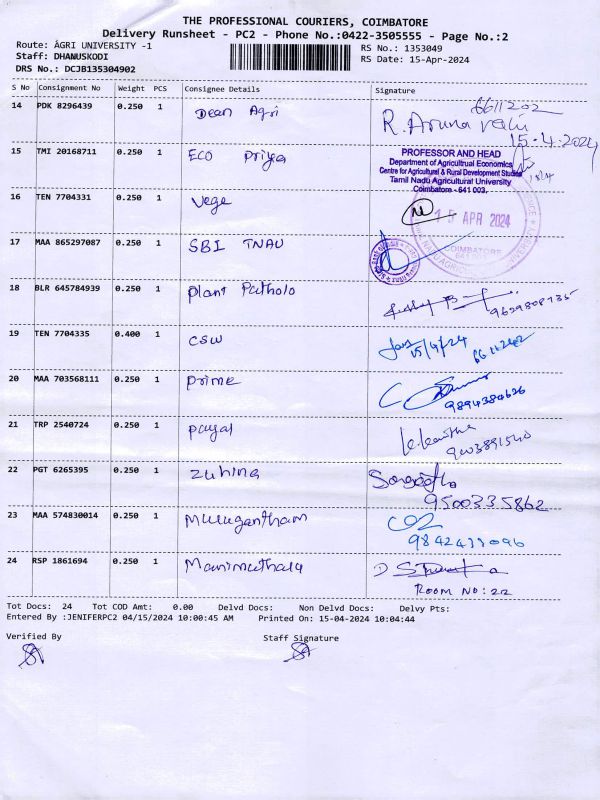 THE PROFESSIONAL COURIERS, COIMBATORE
Delivery Runsheet - PC2 - Phone No.:0422-3505555 - Page No.:2
Route: AGRI UNIVERSITY -1
RS No.: 1353049
Staff: DHANUSKODI
RS Date: 15-Apr-2024
DRS No.: DCJB135304902
S No Consignment No Weight PCS Consignee Details Signature
14 PDK 8296439 0.250 1 Dean Agri 6611202
R. Aruna
15.4.2024
15 TMI 20168711 0.250 1 ECO Priya
PROFESSOR AND HEAD
Department of Agricultrual Economics
Centre for Agricultural & Rural Development Studies
Tamil Nadu Agricultural University
Coimbatore - 641 003.
16 TEN 7704331 0.250 1 Vege
APR 2024
COIMBATORE
17 MAA 865297087 0.250 1 SBI TNAU
18 BLR 645784939 0.250 1 Plant Patholo
19 TEN 7704335 0.400 1 CSW
15/4/24
20 MAA 703568111 0.250 1 Prime
9894384626
21 TRP 2540724 0.250 1 payal
9003891540
22 PGT 6265395 0.250 1 Zuhina
9500335862
23 MAA 574830014 0.250 1 Murugantham
24 RSP 1861694 0.250 1 Manimuthala
ROOM NO: 22
Tot Docs: 24 Tot COD Amt: 0.00 Delvd Docs: Non Delvd Docs: Delvy Pts:
Entered By :JENIFERPC2 04/15/2024 10:00:45 AM Printed On: 15-04-2024 10:04:44
Verified By Staff Signature